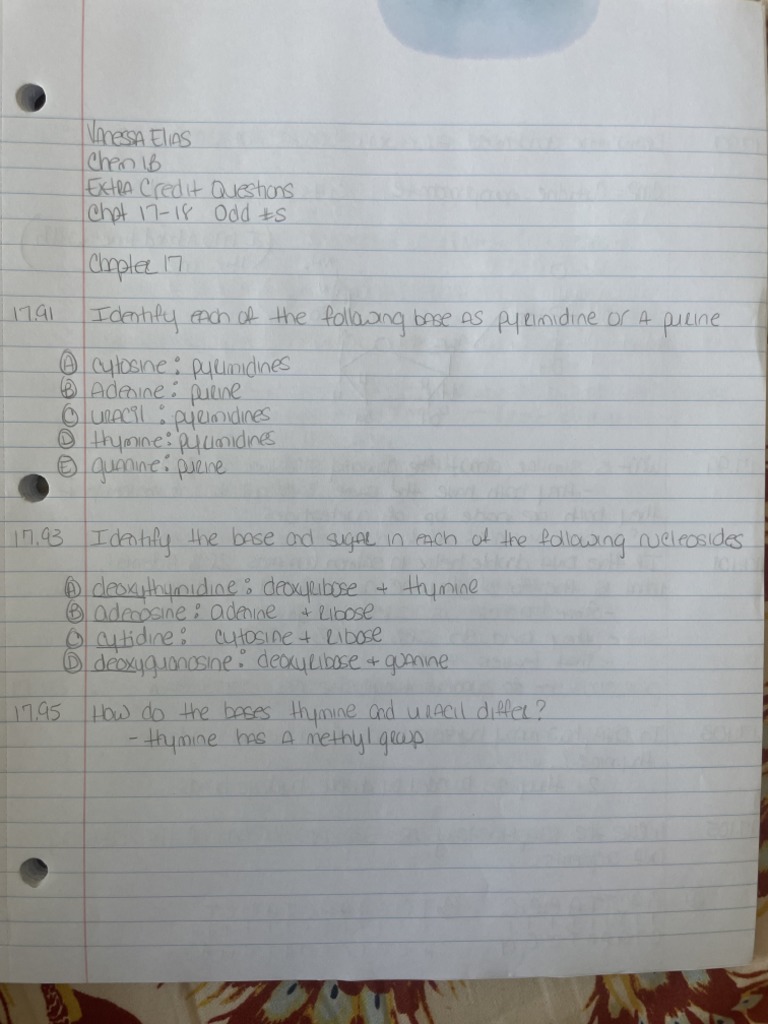 Vanessa Elias
Chem 1B
Extra Credit Questions
Chpt 17-18 Odd #s
Chapter 17
17.91 Identify each of the following base as pyrimidine or a purine
A cytosine: pyrimidines
B Adenine: purine
C uracil: pyrimidines
D thymine: pyrimidines
E guanine: purine
17.93 Identify the base and sugar in each of the following nucleosides
A deoxythymidine: deoxyribose + thymine
B adenosine: adenine + ribose
C cytidine: cytosine + ribose
D deoxyguanosine: deoxyribose + guanine
17.95 How do the bases thymine and uracil differ?
- thymine has a methyl group